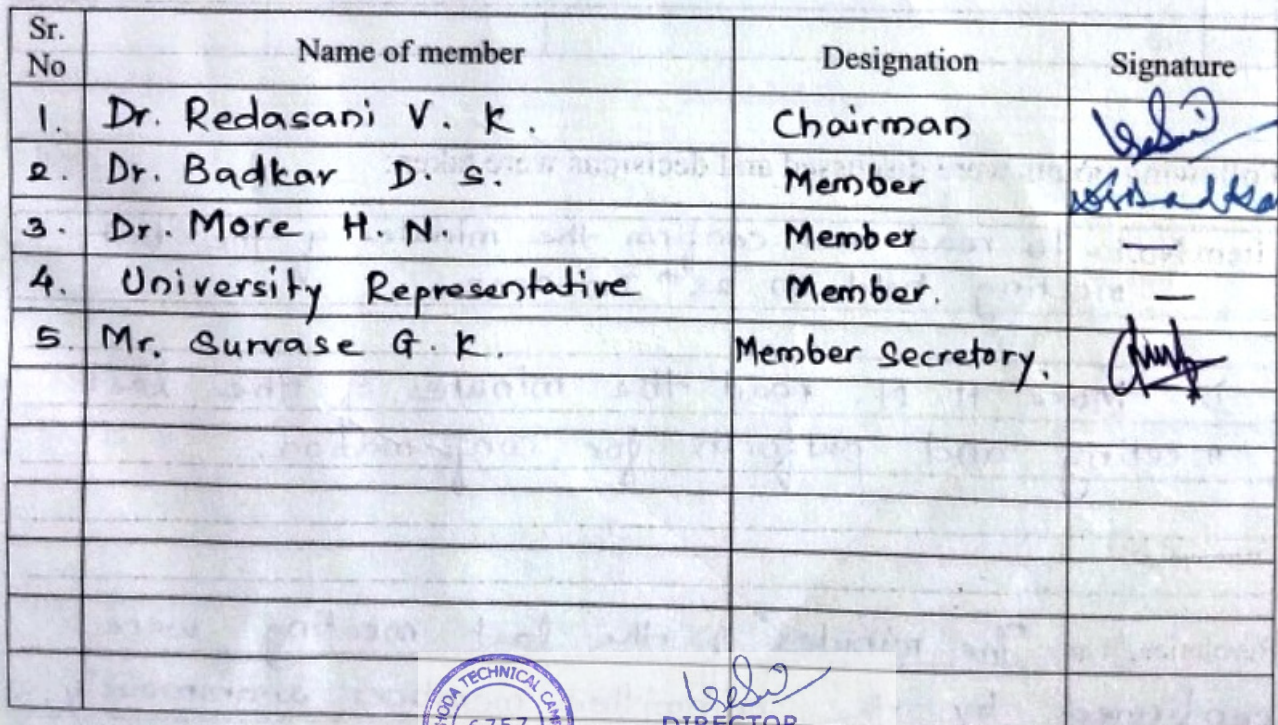 Sr. No Name of member Designation Signature
1. Dr. Redasani V. K. Chairman
2. Dr. Badkar D. S. Member
3. Dr. More H. N. Member —
4. University Representative Member. —
5. Mr. Survase G. K. Member Secretory.
TECHNICAL
6757
DIRECTOR